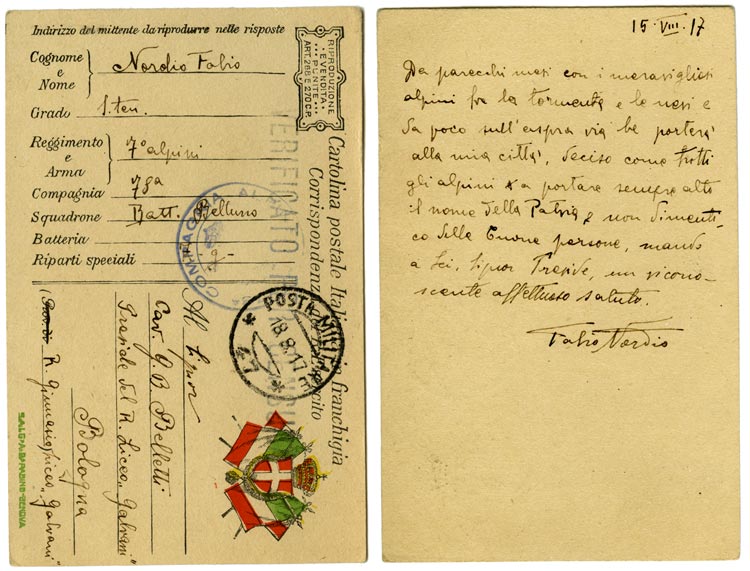 Indirizzo del mittente da riprodurre nelle risposte
Cognome e Nome Nordio Fabio
Grado S. ten.
Reggimento e Arma 7º alpini
Compagnia 78a
Squadrone Batt. Belluno
Batteria
Riparti speciali
RIPRODUZIONE
E VENDITA
PUNITE
ART. 266 E 270 C.P.
VERIFICATO
COMPAGNIA
POSTA MILITARE
18.8.17
Cartolina postale Italiana in franchigia
Corrispondenza Esercito
Al Signor
Cav. G. B. Belletti
Preside del R. Liceo „Galvani"
Bologna
R. Ginnasio Liceo „Galvani"
SAIGA BARABINO-GENOVA
15. VIII. 17
Da parecchi mesi con i meravigliosi
alpini fra la tormenta e le nevi e
da poco sull'aspra via be porterà
alla mia città, deciso come tutti
gli alpini a portare sempre alto
il nome della Patria e non dimenti-
co delle buone persone, mando
a Lei, Signor Preside, un ricono-
scente affettuoso saluto.
Fabio Nordio